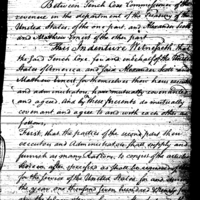 Between Tench Coxe Commissioner of the
revenue in the department of the Treasury of the
United States, of the one part, and Alexander Scott
and Matthew Ernest of the other part
This Indenture Witnesseth that
the said Tench Coxe, for and on behalf of the United
States of America and said Alexander Scott and
Matthew Ernest for themselves their heirs executors
and administrators, have mutually covenanted
and agreed, And by these presents do mutually
covenant and agree to and with each other as
follows,
First, that the parties of the second part their
executors and Administrators shall supply and
furnish as many Rations, to consist of the articles
herein after specified as shall be required
for the use of the United States, from
the year one thousand seven hundred